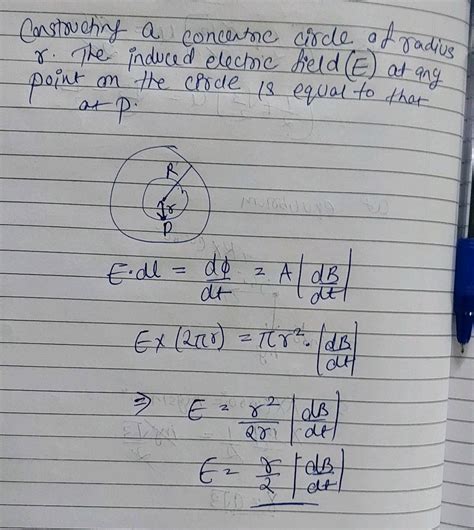 Constructing a concentric circle of radius
r. The induced electric field (E) at any
point on the circle is equal to that
at P.
R
r
P
E·dl = dϕ/dt = A |dB/dt|
E× (2πr) = πr²· |dB/dt|
⇒ E = r²/2r |dB/dt|
E = r/2 |dB/dt|